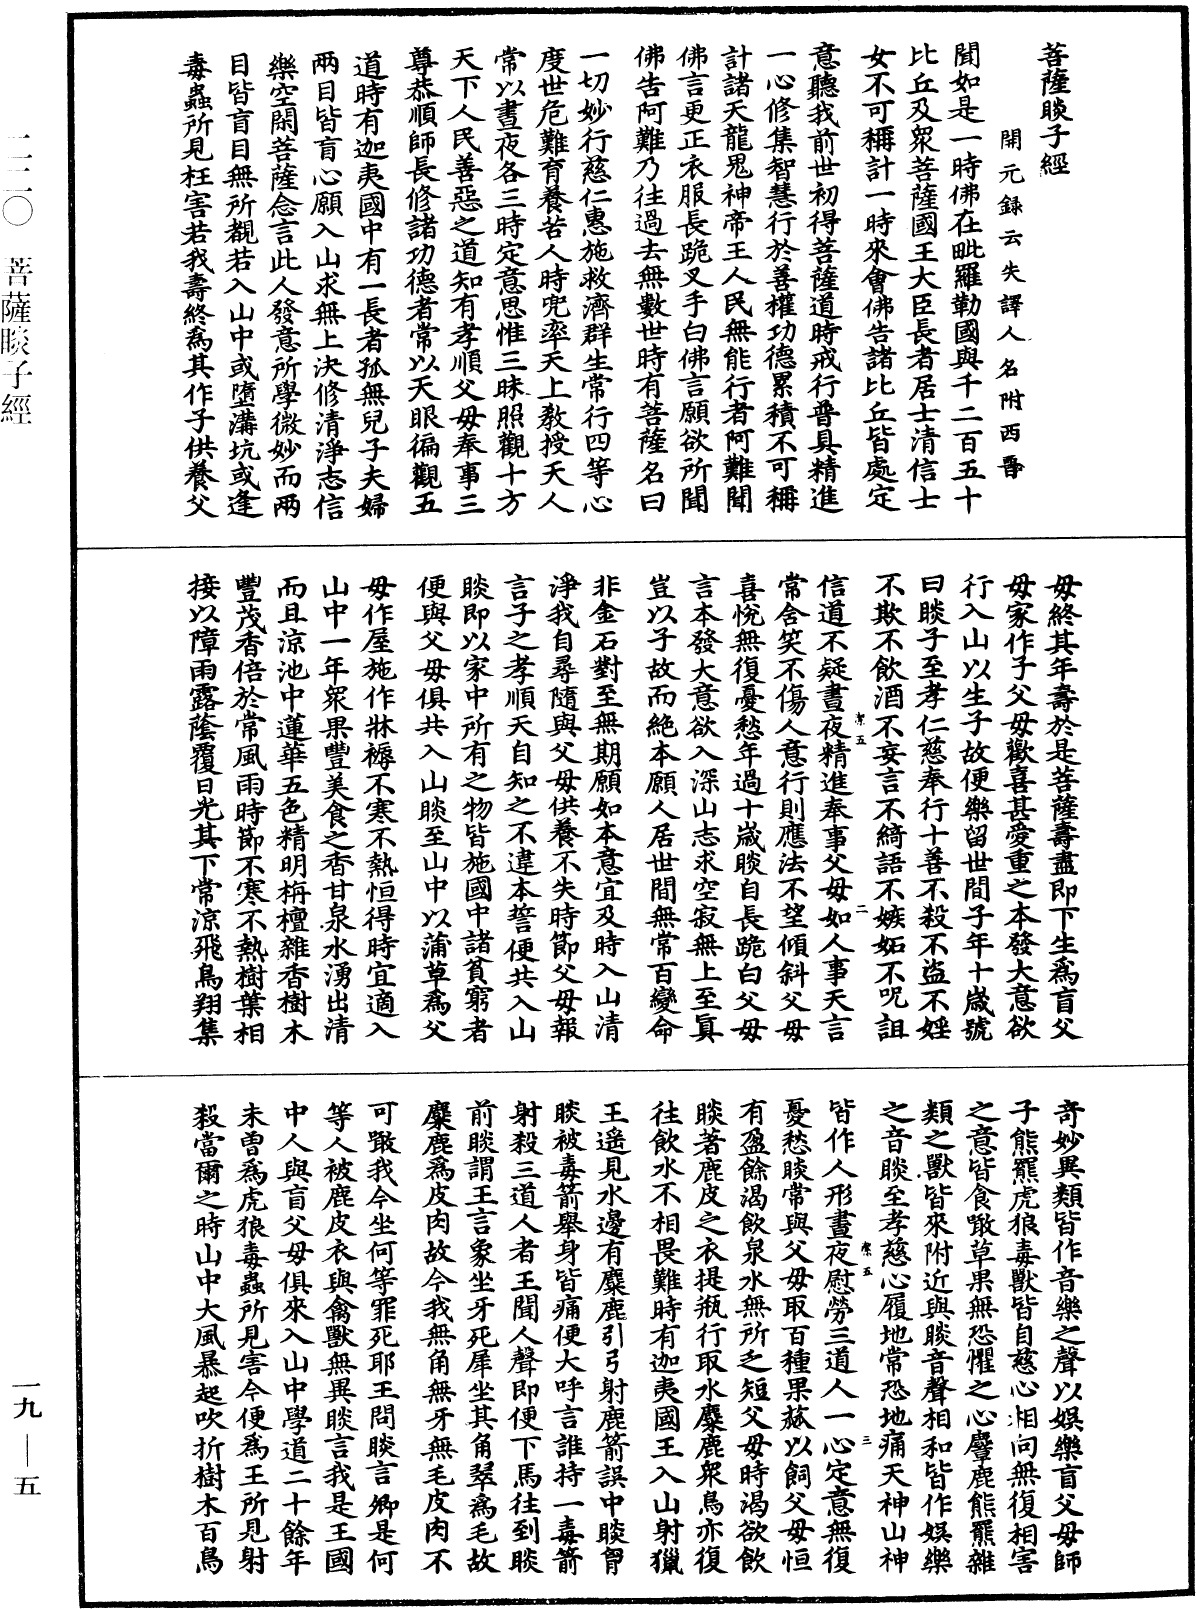 菩薩睒子經
開元錄云失譯人名附西晉
聞如是一時佛在毗羅勒國與千二百五十
比丘及衆菩薩國王大臣長者居士清信士
女不可稱計一時來會佛告諸比丘皆處定
意聽我前世初得菩薩道時戒行普具精進
一心修集智慧行於善權功德累積不可稱
計諸天龍鬼神帝王人民無能行者阿難聞
佛言更正衣服長跪叉手白佛言願欲所聞
佛告阿難乃往過去無數世時有菩薩名曰
一切妙行慈仁惠施救濟群生常行四等心
度世危難育養苦人時兜率天上教授天人
常以晝夜各三時定意思惟三昧照觀十方
天下人民善惡之道知有孝順父母奉事三
尊恭順師長修諸功德者常以天眼徧觀五
道時有迦夷國中有一長者孤無兒子夫婦
兩目皆盲心願入山求無上決修清淨志信
樂空閑菩薩念言此人發意所學微妙而兩
目皆盲目無所覩若入山中或墮溝坑或逢
毒蟲所見枉害若我壽終爲其作子供養父
母終其年壽於是菩薩壽盡即下生爲盲父
母家作子父母歡喜甚愛重之本發大意欲
行入山以生子故便樂留世間子年十歲號
曰睒子至孝仁慈奉行十善不殺不盜不婬
不欺不飲酒不妄言不綺語不嫉妬不呪詛
信道不疑晝夜精進奉事父母如人事天言
常含笑不傷人意行則應法不望傾斜父母
喜悅無復憂愁年過十歲睒自長跪白父母
言本發大意欲入深山志求空寂無上至真
豈以子故而絕本願人居世間無常百變命
非金石對至無期願如本意宜及時入山清
淨我自尋隨與父母供養不失時節父母報
言子之孝順天自知之不違本誓便共入山
睒即以家中所有之物皆施國中諸貧窮者
便與父母俱共入山睒至山中以蒲草爲父
母作屋施作牀褥不寒不熱恒得時宜適入
山中一年衆果豐美食之香甘泉水湧出清
而且涼池中蓮華五色精明栴檀雜香樹木
豐茂香倍於常風雨時節不寒不熱樹葉相
接以障雨露蔭覆日光其下常涼飛鳥翔集
奇妙異類皆作音樂之聲以娛樂盲父母師
子熊羆虎狼毒獸皆自慈心相向無復相害
之意皆食噉草果無恐懼之心麞鹿熊羆雜
類之獸皆來附近與睒音聲相和皆作娛樂
之音睒至孝慈心履地常恐地痛天神山神
皆作人形晝夜慰勞三道人一心定意無復
憂愁睒常與父母取百種果蓏以飼父母恒
有盈餘渴飲泉水無所乏短父母時渴欲飲
睒著鹿皮之衣提瓶行取水麋鹿衆鳥亦復
往飲水不相畏難時有迦夷國王入山射獵
王遙見水邊有麋鹿引弓射鹿箭誤中睒胷
睒被毒箭舉身皆痛便大呼言誰持一毒箭
射殺三道人者王聞人聲即便下馬往到睒
前睒謂王言象坐牙死犀坐其角翠爲毛故
麋鹿爲皮肉故今我無角無牙無毛皮肉不
可噉我今坐何等罪死耶王問睒言卿是何
等人被鹿皮衣與禽獸無異睒言我是王國
中人與盲父母俱來入山中學道二十餘年
未曾爲虎狼毒蟲所見害今便爲王所見射
殺當爾之時山中大風暴起吹折樹木百鳥
絜五
二
絜五
三
一二二〇 菩薩睒子經
一九—五